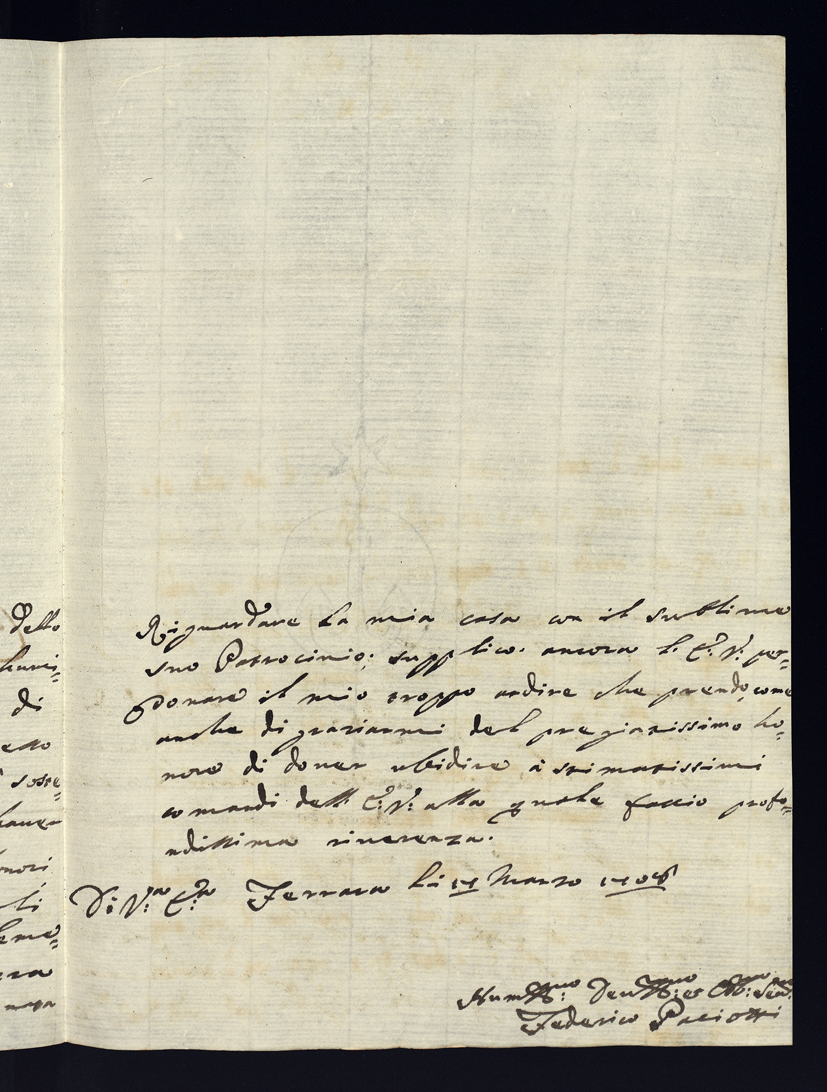 dello
di
etto
sotte=
honori
li
Riguardare la mia casa con il sublime
suo Patrocinio; supplico ancora l. E.ª V.ª per=
donare il mio troppo ardire che prendo, come
anche di graziarmi del pregiatissimo ho=
nore di dover ubidire à stimatissimi
comandi dell. E.ª V.ª alla quale faccio profo=
ndissima riverenza.
Di V.ra E.za Ferrara li Marzo
Hum.mo Deu.mo et Obb.mo Seru.
Federico Paciotti